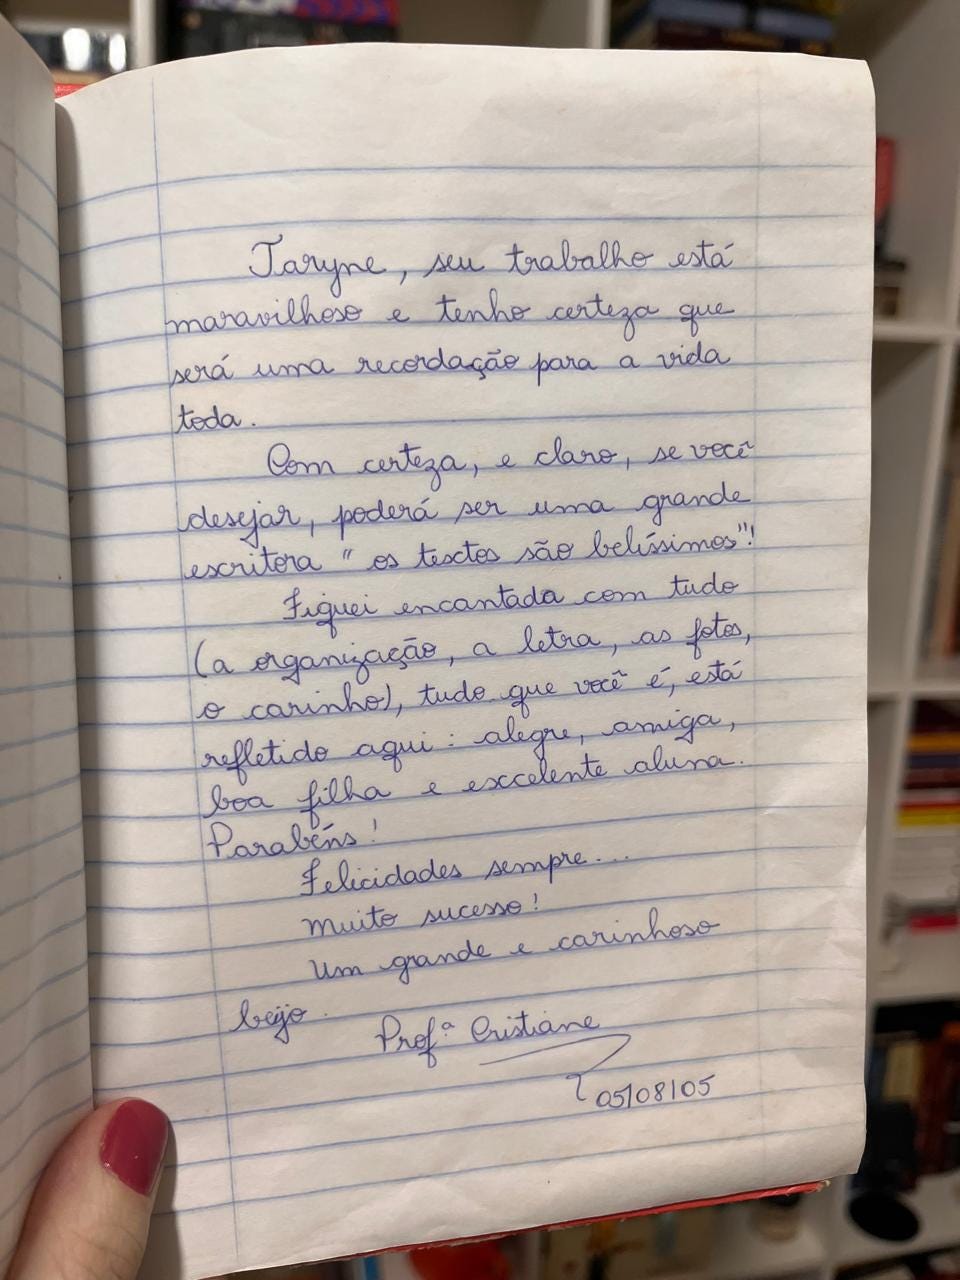 Taryne, seu trabalho está
maravilhoso e tenho certeza que
será uma recordação para a vida
toda.
Com certeza, e claro, se você
desejar, poderá ser uma grande
escritora " os textos são belíssimos"!
Fiquei encantada com tudo
(a organização, a letra, as fotos,
o carinho), tudo que você é, está
refletido aqui: alegre, amiga,
boa filha e excelente aluna.
Parabéns!
Felicidades sempre...
Muito sucesso!
Um grande e carinhoso
beijo.
Profª Cristiane
05/08/05